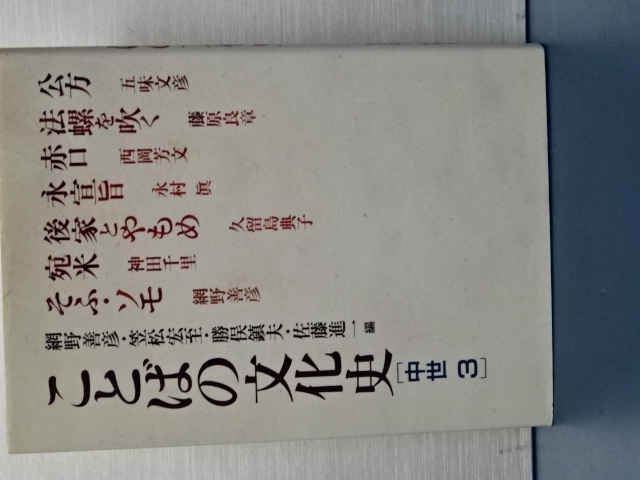 公方 五味文彦
法螺を吹く 藤原良章
赤口 西岡芳文
永宣旨 永村眞
後家とやもめ 久留島典子
宛米 神田千里
そふ・ソモ 網野善彦
網野善彦・笠松宏至・勝俣鎮夫・佐藤進一 編
ことばの文化史[中世3]